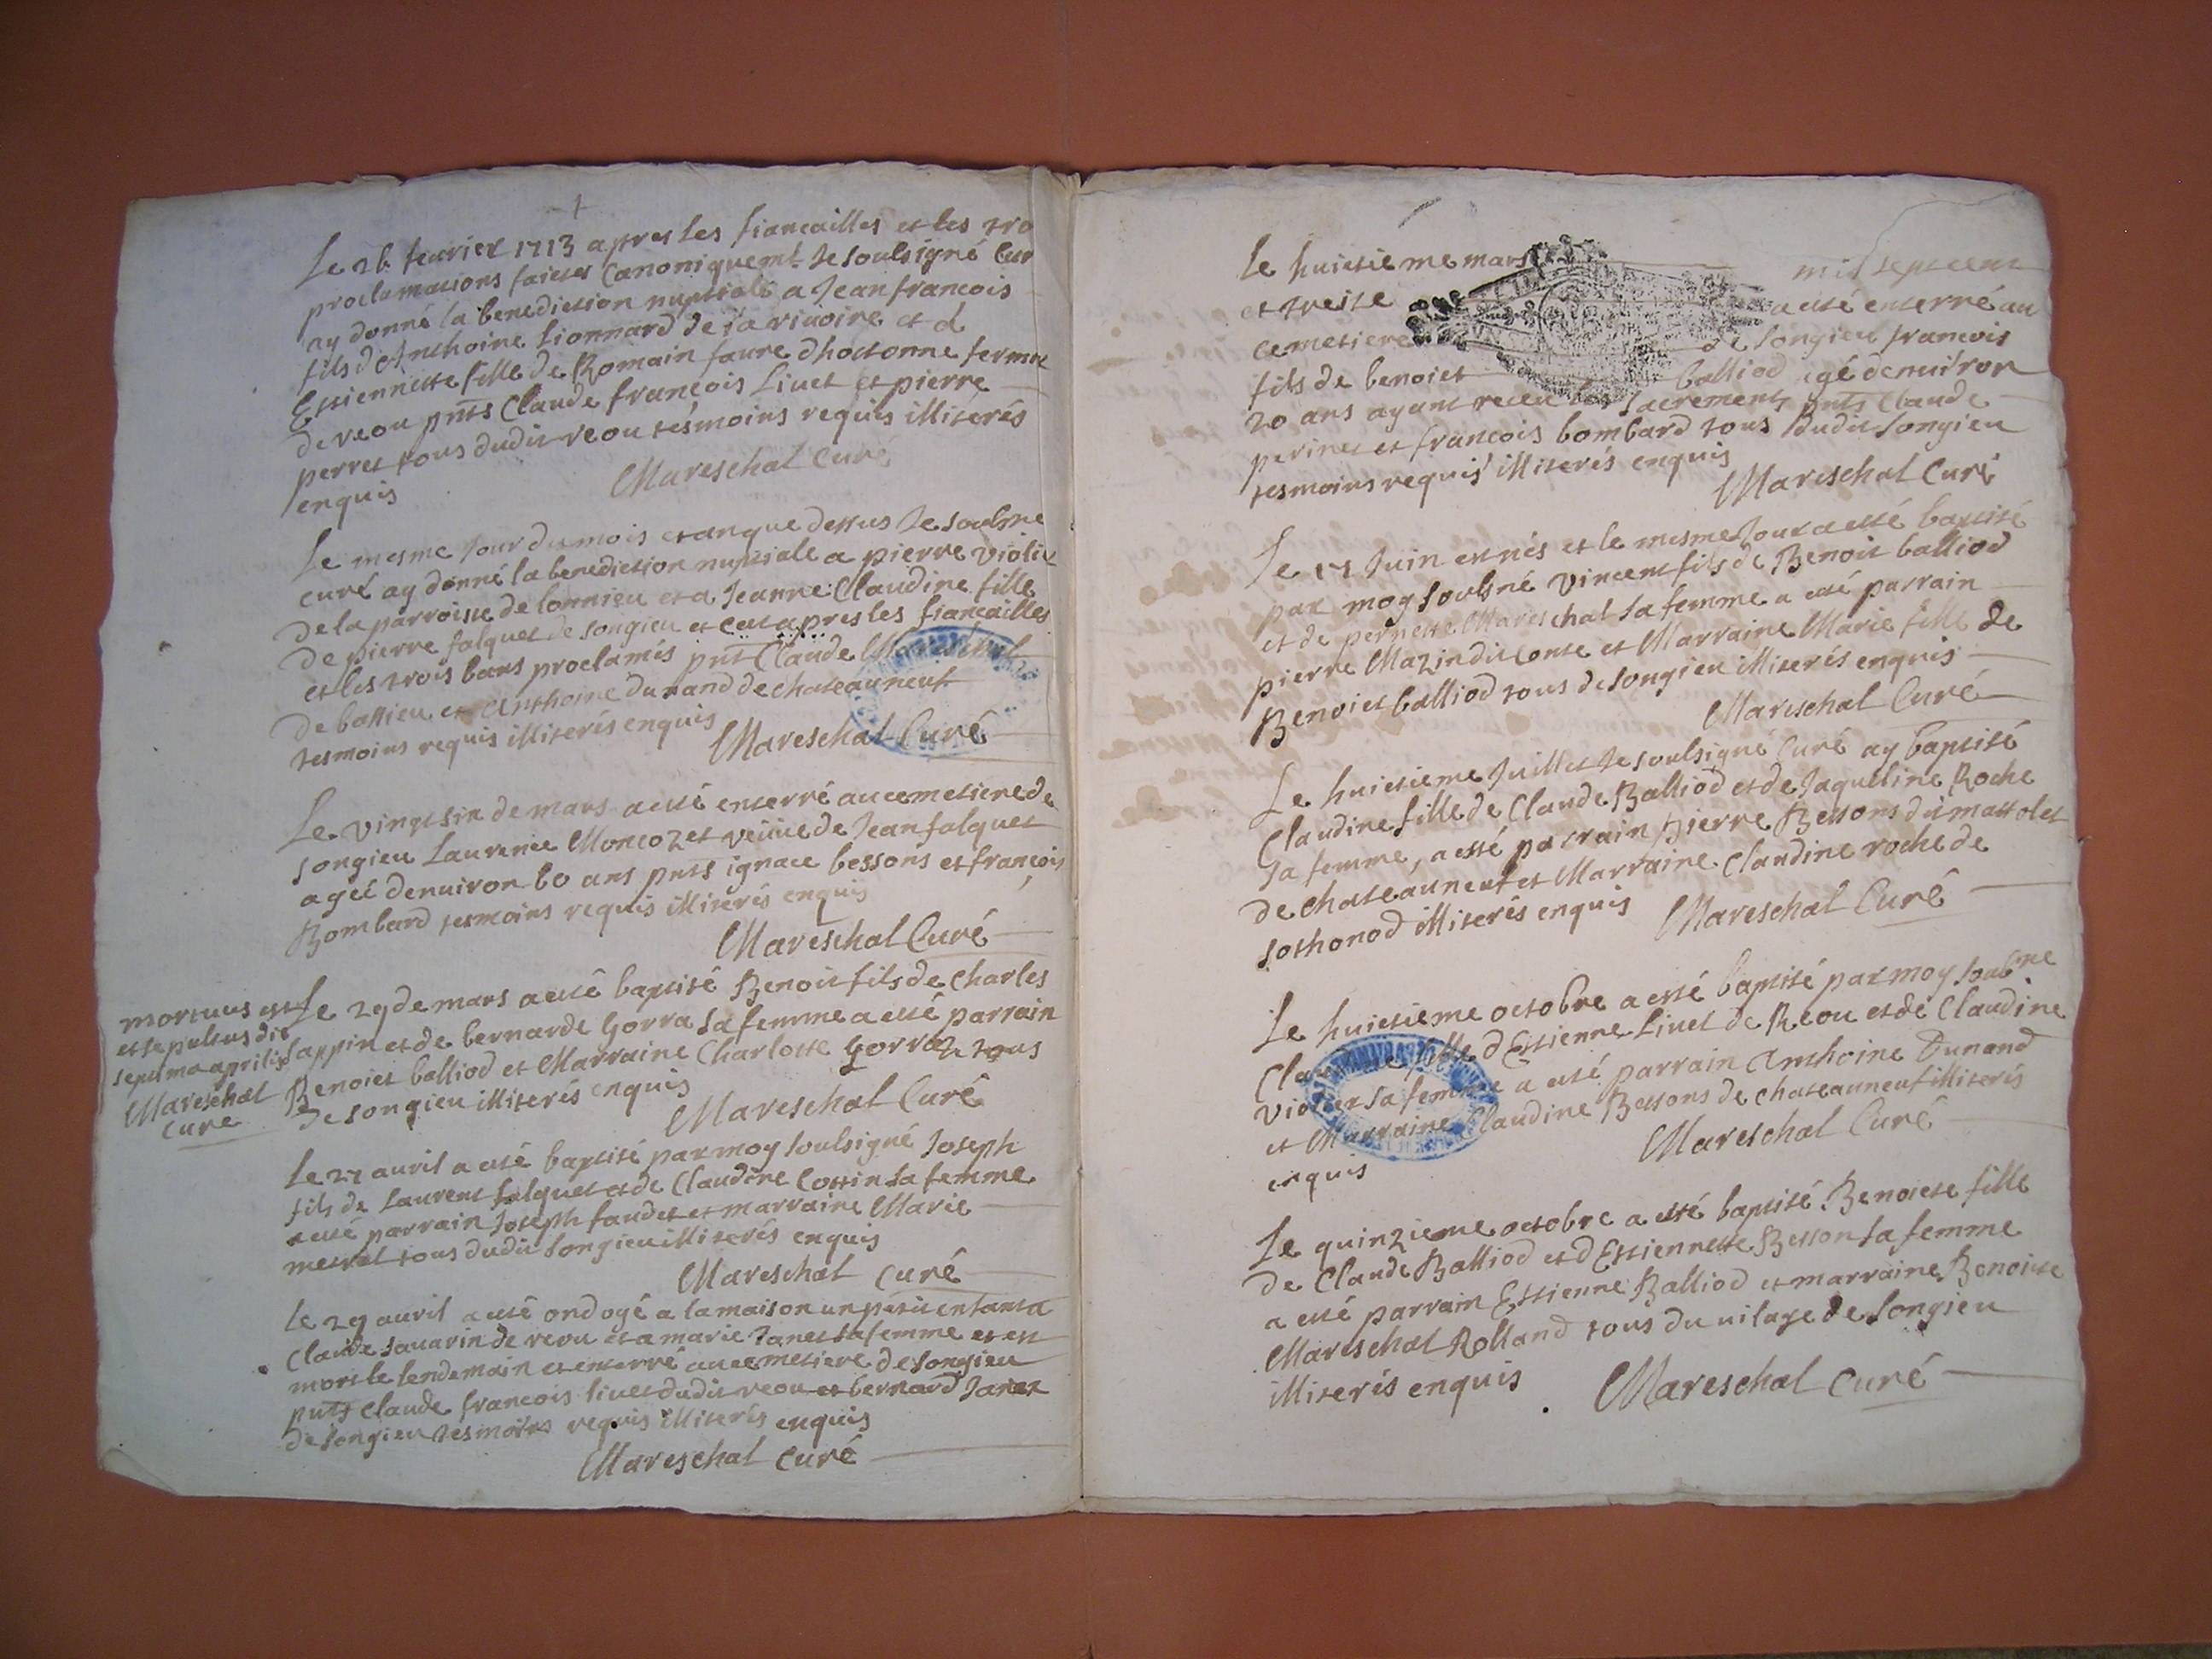 Le 26 feurier 1713 apres les fiancailles et les tro
proclamations faictes Canoniquemt. Je soulsigné Cur
ay donné la benediction nuptiale a Jean francois
fils d'Anthoine Lionnard de la riuoire et d
Estiennette fille de Romain faure dhostonne ferm
de reou pnts Claude françois Liuet et pierre
perret tous dudit reou tesmoins requis illiterés
enquis Mareschal Curé
Le mesme Jour du mois et an que dessus Je soulsne
curé ay donné la benediction nuptiale a pierre violi
de la parroisse de lonnieu et a Jeanne Claudine fille
de pierre falquet de songieu et ce apres les fiancailles
et les trois bans proclamés pnts Claude Mareschal
de bassieu et Anthoine Dunand de chateauneuf
tesmoins requis illiterés enquis
Mareschal Curé
Le vingt six de mars a esté enterré au cemetiere de
songieu Laurence Moncozet veüue de Jean falquet
agéé denuiron 60 ans pnts ignace bessons et françois
Bombard tesmoins requis illiterés enquis
Mareschal Curé
mortuus est
et sepultus die
septima aprilis
Mareschal
cure
Le 29 de mars a esté baptisé Benoit fils de Charles
sappin et de bernarde Gorra sa femme a esté parrain
Benoict balliod et Marraine Charlotte Gorraz tous
de songieu illiterés enquis
Mareschal Curé
Le 27 auril a esté baptisé par moy soulsigné Joseph
fils de Laurent falquet et de Claudine Cottin sa femme
a esté parrain Joseph faudet et marraine Marie
mestral tous dudit songieu illiterés enquis
Mareschal curé
Le 29 auril a esté ondoyé a la maison un petit enfant a
Claude sauarin de reou et a marie Janet sa femme et est
mort le lendemain et enterré au cemetiere de songieu
pnts Claude francois liuet dudit reou et bernard Janet
de songieu tesmoins requis illiterés enquis
Mareschal curé
Le huictieme mars mil sept cent
et treise a esté enterré au
cemetiere de songieu francois
fils de benoict balliod agé denuiron
20 ans ayant receu les sacrements pnts Claude
perinet et francois bombard tous dudit songieu
tesmoins requis illiterés enquis
Mareschal Curé
Le 17 Juin est nés et le mesme Jour a esté baptisé
par moy soulsné Vincent fils de Benoit balliod
et de pernette Mareschal sa femme a esté parrain
pierre Mazin dit conte et Marraine Marie fille de
Benoict balliod tous de songieu illiterés enquis
Mareschal Curé
Le huictieme Juillet Je soulsigné Curé ay baptisé
Claudine fille de Claude Balliod et de Jaqueline Roche
sa femme, a esté parrain pierre Bessons dit mattolet
de chateauneuf et Marraine Claudine roche de
sothonod illiterés enquis
Mareschal Curé
Le huictieme octobre a esté baptisé par moy soulsne
fille d'Estienne Liuet de Reou et de Claudine
Violet sa femme a esté parrain Anthoine Dunand
et Marraine Claudine Bessons de chateauneuf illiterés
enquis
Mareschal Curé
Le quinzieme octobre a esté baptisé Benoiete fille
de Claude Balliod et d'Estiennette Besson sa femme
a esté parrain Estienne Balliod et marraine Benoiete
Mareschal Rolland tous du uilage de songieu
illiterés enquis
Mareschal curé